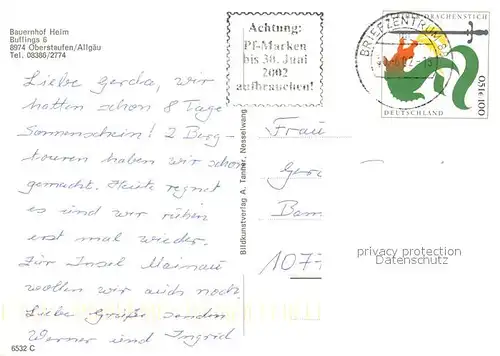 Bauernhof Heim
Buflings 6
8974 Oberstaufen/Allgäu
Tel. 08386/2774
Liebe Gerda, wir
hatten schon 8 Tage
Sonnenschein! 2 Berg-
touren haben wir schon
gemacht. Heute regnet
es und wir ruhen
erst mal wieder.
Zur Insel Mainau
wollen wir auch noch.
Liebe Grüße senden
Werner und Ingrid
6532 C
Bildkunstverlag A. Tanner, Nesselwang
Achtung:
Pf-Marken
bis 30. Juni
2002
aufbrauchen!
BRIEFZENTRUM
DRACHENSTICH
DEUTSCHLAND
0,51€ 100
Frau
Ger
1077
privacy protection
Datenschutz